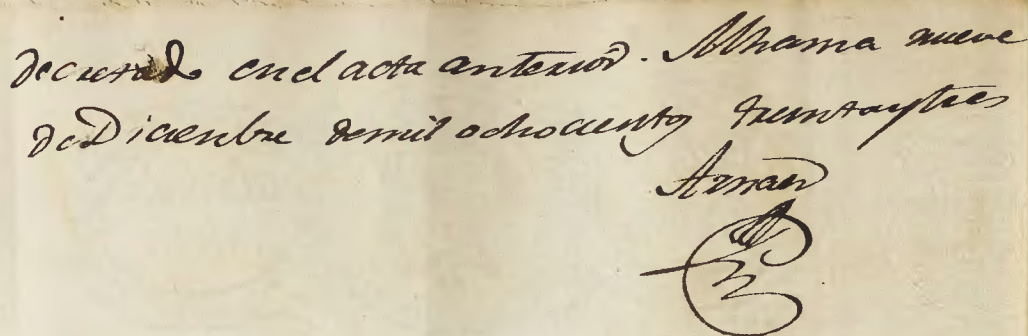 decretado en el acta anterior. Alhama nueve
de Diciembre de mil ochocientos treinta y tres
Aznar